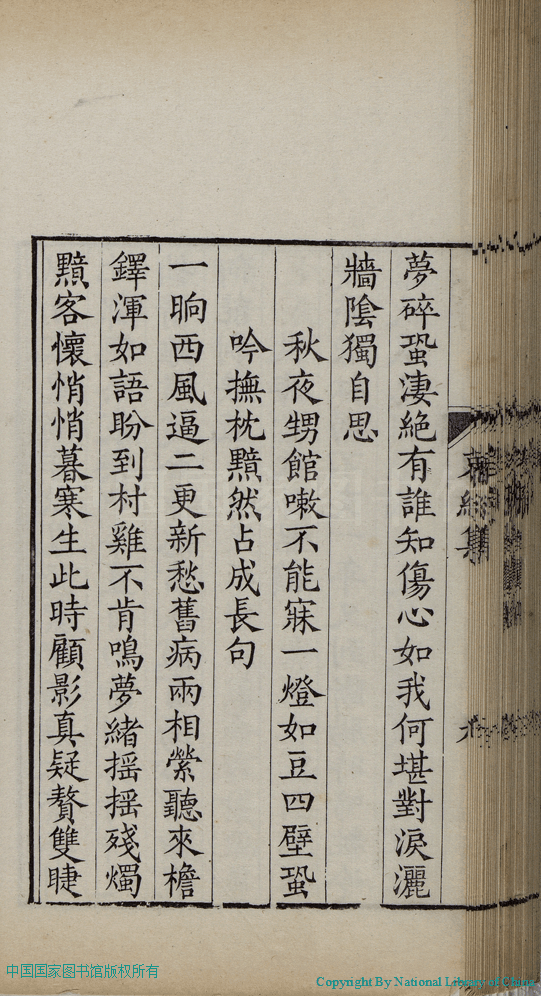 夢碎蛩淒絕有誰知傷心如我何堪對淚灑
牆陰獨自思
秋夜甥館嗽不能寐一燈如豆四壁蛩
吟撫枕黯然占成長句
一晌西風逼二更新愁舊病兩相縈聽來檐
鐸渾如語盼到村雞不肯鳴夢緒揺揺殘燭
黯客懷悄悄暮寒生此時顧影真疑贅雙睫
中国国家图书馆版权所有
Copyright By National Library of China